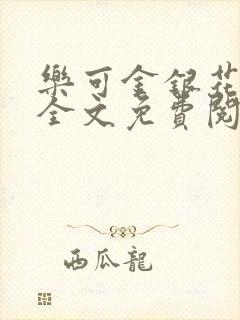 樂可金銀花
全文免費閱
西瓜龍